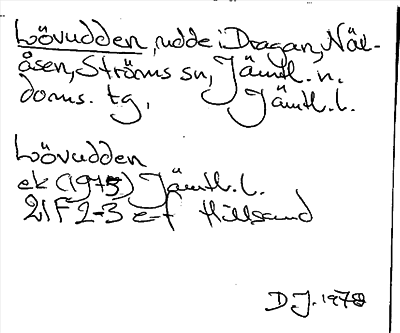 Lövudden, udde i Dragan, Näs-
åsen, Ströms sn, Jämtl. n.
doms. tg, Jämtl. l.
Lövudden
ek (1975) Jämtl. l.
21F 2-3 e-f Hillsand
D J. 1978